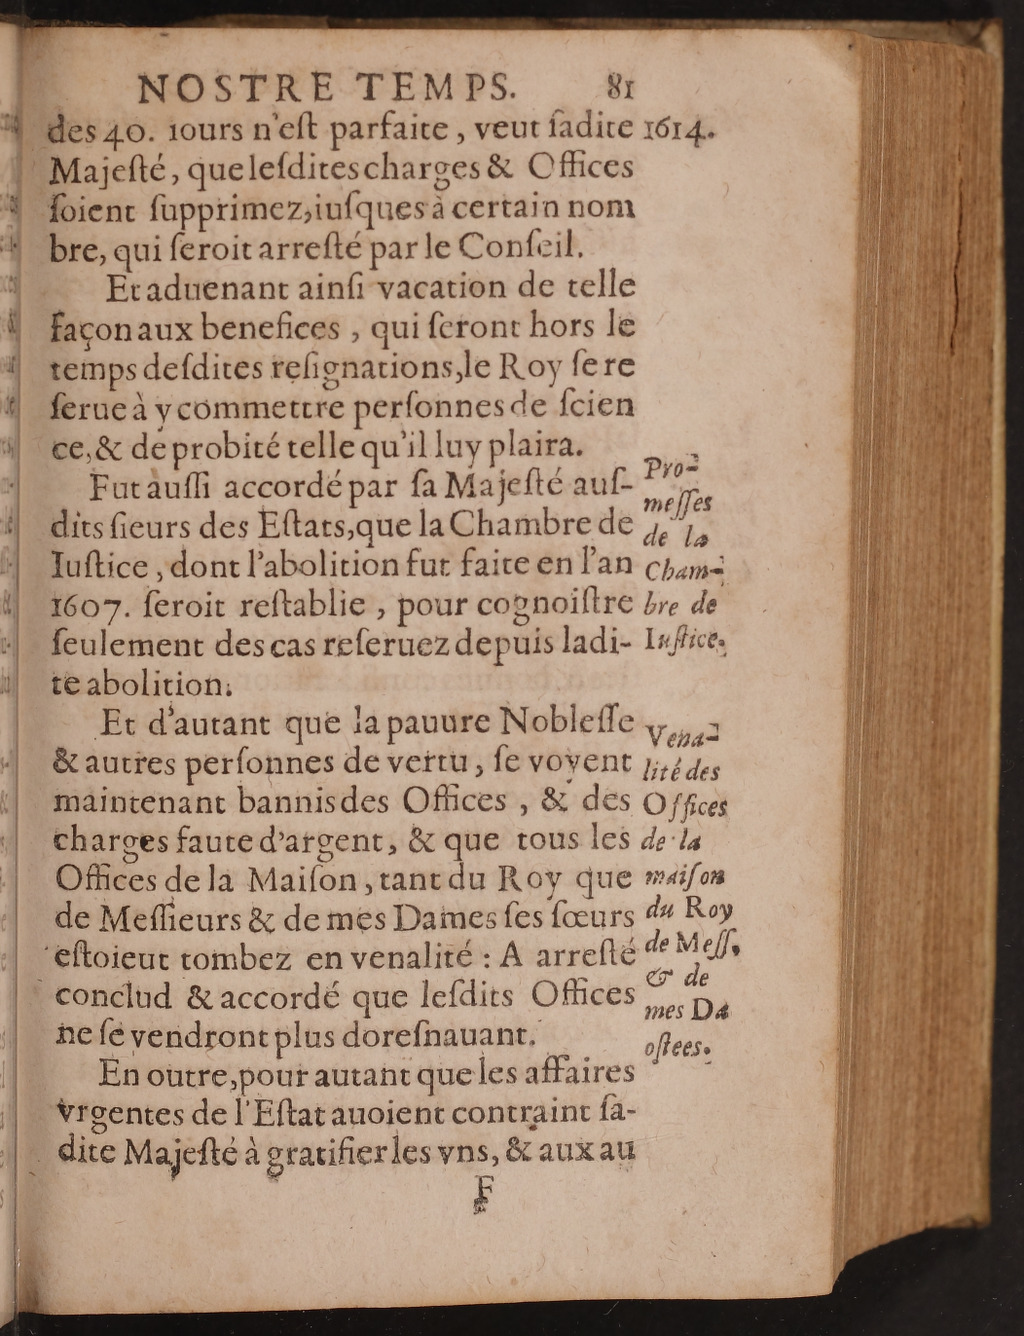 NOSTRE TEMPS. 81
des 40. iours n'eſt parfaite, veut ſadite 1614.
Majeſté, que leſdites charges & Offices
ſoient ſupprimez, iuſques à certain nom
bre, qui ſeroit arreſté par le Conſeil.
Et aduenant ainſi vacation de telle
façon aux benefices, qui ſeront hors le
temps deſdites reſignations, le Roy ſe re
ſerue à y commettre perſonnes de ſcien
ce, & de probité telle qu'il luy plaira.
Fut auſſi accordé par ſa Majeſté auſ-
dits ſieurs des Eſtats, que la Chambre de
Iuſtice, dont l'abolition fut faite en l'an
1607. ſeroit reſtablie, pour cognoiſtre
ſeulement des cas reſeruez depuis ladi-
te abolition.
Et d'autant que la pauure Nobleſſe
& autres perſonnes de vertu, ſe voyent
maintenant bannis des Offices, & des
charges faute d'argent, & que tous les
Offices de la Maiſon, tant du Roy que
de Meſſieurs & de mes Dames ſes ſœurs
eſtoieut tombez en venalité : A arreſté
conclud & accordé que leſdits Offices
ne ſe vendront plus doreſnauant.
En outre, pour autant que les affaires
vrgentes de l'Eſtat auoient contraint ſa-
dite Majeſté à gratifier les vns, & aux au
F
Pro-
meſſes
de la
Cham-
bre de
Iuſtice.
Vena-
lité des
Offices
de la
maiſon
du Roy
de Meſſ.
& de
mes Da
oſtees.